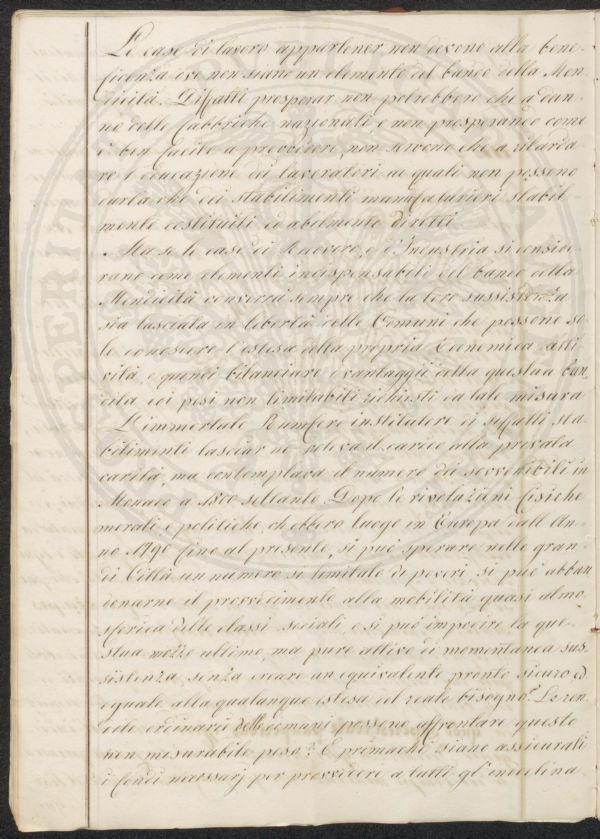 Le case di lavoro appartener non devono alla bene-
ficenza ove non siano un elemento del bando della Men-
dicità. Difatti prosperar non potrebbero che a dan-
no delle fabbriche nazionali e non prosperando come
è ben facile a prevedere, non servono che a ritarda-
re l'educazione dei lavoratori ai quali non possono
darla che dei stabilimenti manufatturieri stabil-
mente costituiti ed abilmente diretti.
Ma se le case di Ricovero, e d'Industria si conside-
rano come elementi indispensabili del bando della
Mendicità converrà sempre che la loro sussistenza
sia lasciata in libertà delle Comuni che possono so-
le conoscere l'estesa della propria Economica atti-
vità, e quindi bilanciare i vantaggi della questua ban-
dita coi pesi non limitabili richiesti da tale misura
L'immortale Rumford institutore di siffatti sta-
bilimenti lasciar ne poteva il carico alla privata
carità, ma contemplava il numero dei sovvenibili in
Monaco a 1800 soltanto. Dopo le rivoluzioni fisiche
morali, e politiche ch'ebbero luogo in Europa dall'An-
no 1790 fino al presente, si può sperare nelle gran-
di Città un numero sì limitato di poveri, si può abban-
donarne il provvedimento alla mobilità quasi atmo-
sferica delle classi sociali e si può impedire la que-
stua mezzo ultimo, ma pure attivo di momentanea sus-
sistenza, senza creare un equivalente pronto sicuro ed
eguale alla qualunque estesa del reale bisogno? Le ren-
dite ordinarie delle comuni possono affrontare questo
non misurabile peso? E primachè siano assicurati
i fondi necessarj per provvedere a tutti gl'indeclina-